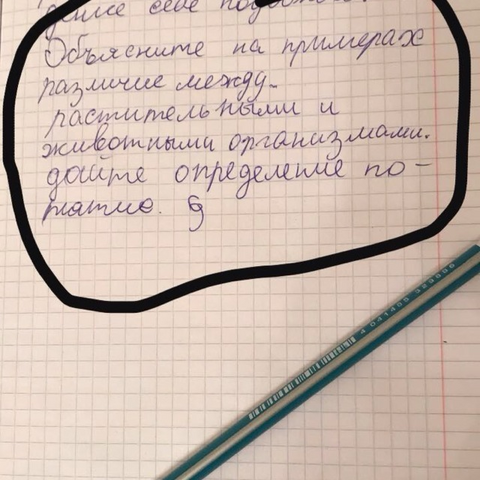 себе
Объясните на примерах
различие между
растительными и
животными организмами.
дайте определение по-
нятию.